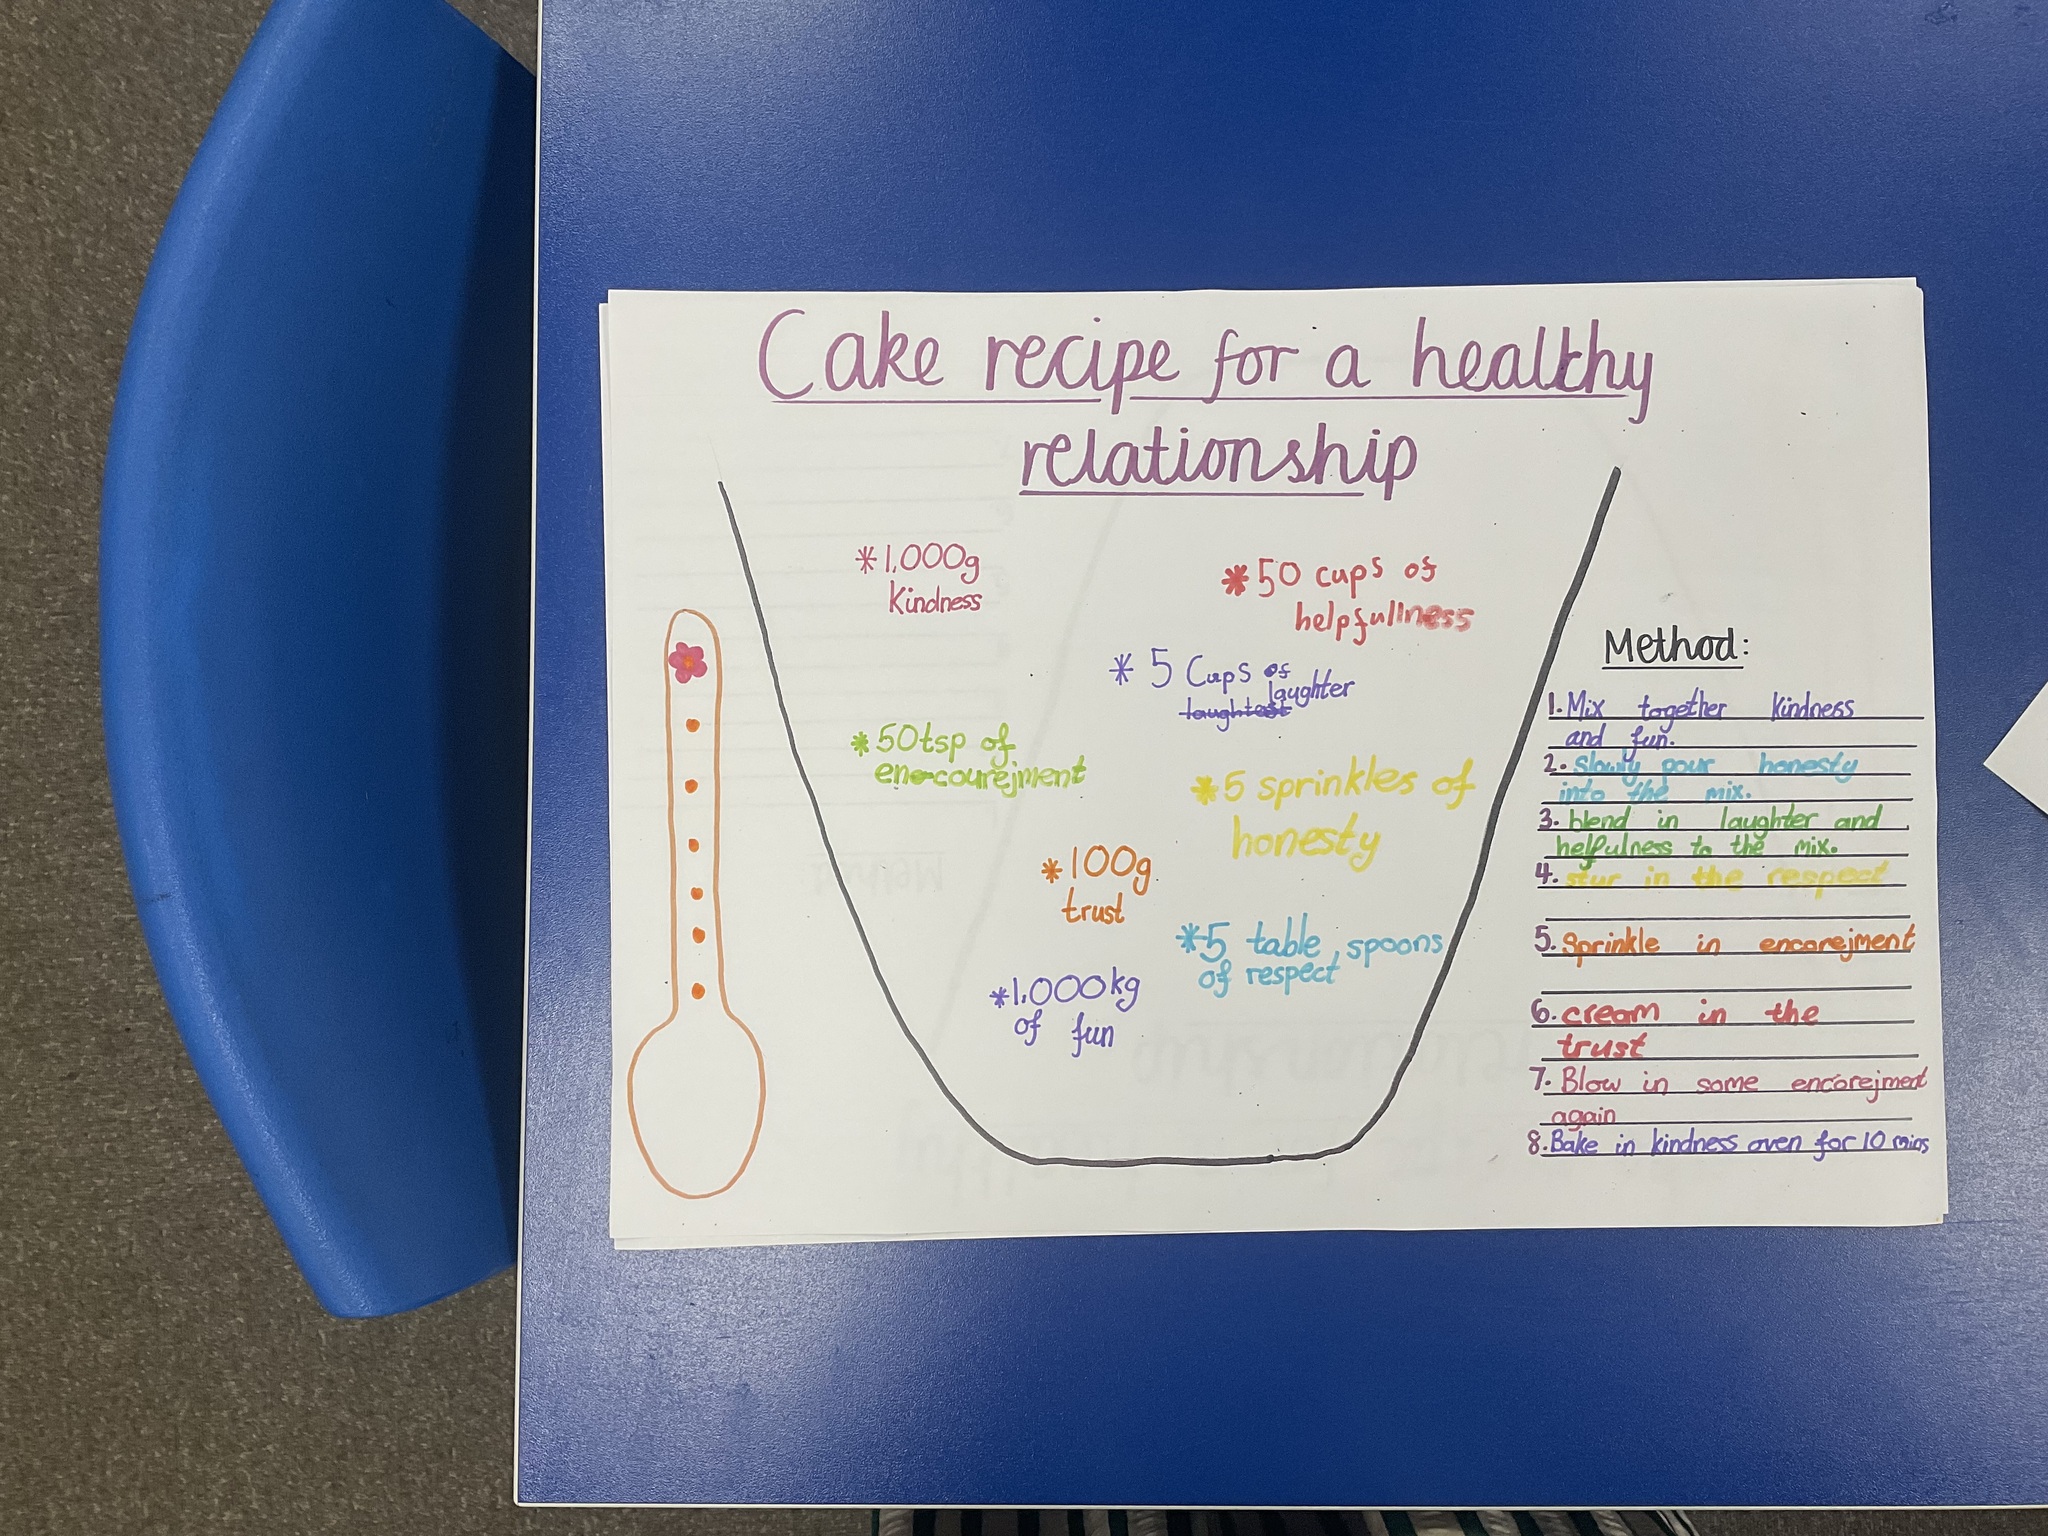 Cake recipe for a healthy
relationship
*1,000g
Kindness
*50 cups of
helpfullness
* 5 Cups of
laughter
*50tsp of
encourejment
*5 sprinkles of
honesty
*100g
trust
*5 table spoons
of respect
*1,000kg
of fun
Method:
1. Mix together kindness
and fun.
2. Slowly pour honesty
into the mix.
3. blend in laughter and
helpfulness to the mix.
4. stur in the respect
5. Sprinkle in encorejment
6. cream in the
trust
7. Blow in some encorejment
again
8. Bake in kindness oven for 10 mins